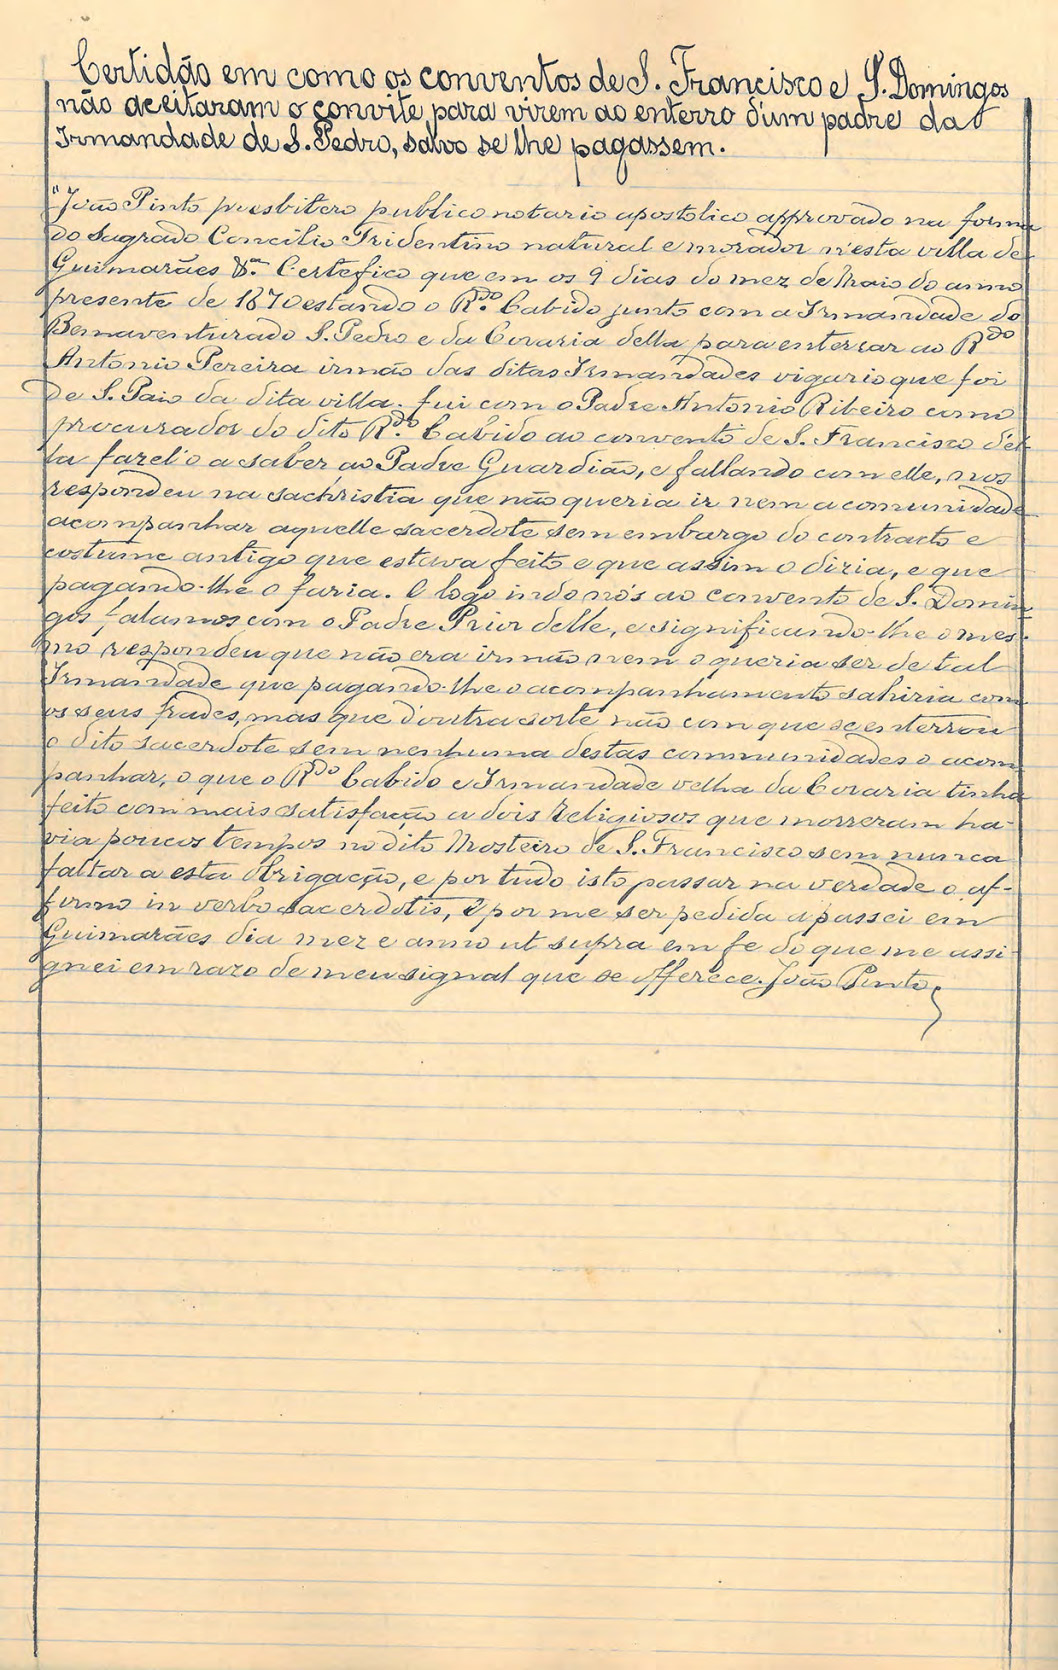 Certidão em como os conventos de S. Francisco e S. Domingos
não aceitaram o convite para virem ao enterro d'um padre da
Irmandade de S. Pedro, salvo se lhe pagassem.
"João Pinto presbitero publico notario apostolico approvado na forma
do Sagrado Concilio Tridentino natural e morador n'esta villa de
Guimarães &ª. Certefico que em os 9 dias do mez de Maio do anno
presente de 1670 estando o Rdo. Cabido junto com a Irmandade do
Bemaventurado S. Pedro e da Coraria della para enterrar ao Rdo
Antonio Pereira irmão das ditas Irmandades vigario que foi
de S. Paio da dita villa. fui com o Padre Antonio Ribeiro como
procurador do dito Rdo. Cabido ao convento de S. Francisco d'el
la fazel'o a saber ao Padre Guardião, e fallando com elle, nos
respondeu na sachristia que não queria ir nem a comunidade
acompanhar aquelle sacerdote sem embargo do contracto e
costume antigo que estava feito e que assim o diria, e que
pagando-lhe o faria. E logo indo nós ao convento de S. Domin
gos falamos com o Padre Prior delle, e significando-lhe o mes-
mo respondeu que não era irmão nem o queria ser de tal
Irmandade que pagando-lhe o acompanhamento sahiria com
os seus frades, mas que d'outra sorte não com que se enterrou
o dito sacerdote sem nenhuma destas communidades o acom
panhar, o que o Rdo Cabido e Irmandade velha da Coraria tinha
feito com mais satisfação a dois Religiosos que morreram ha-
via poucos tempos no dito Mosteiro de S. Francisco sem nunca
faltar a esta obrigação, e por tudo isto passar na verdade o af-
firmo in verbo sacerdotis, E por me ser pedida a passei em
Guimarães dia mez e anno ut supra em fe do que me assi-
gnei em razo de meu signal que se offerece. João Pinto